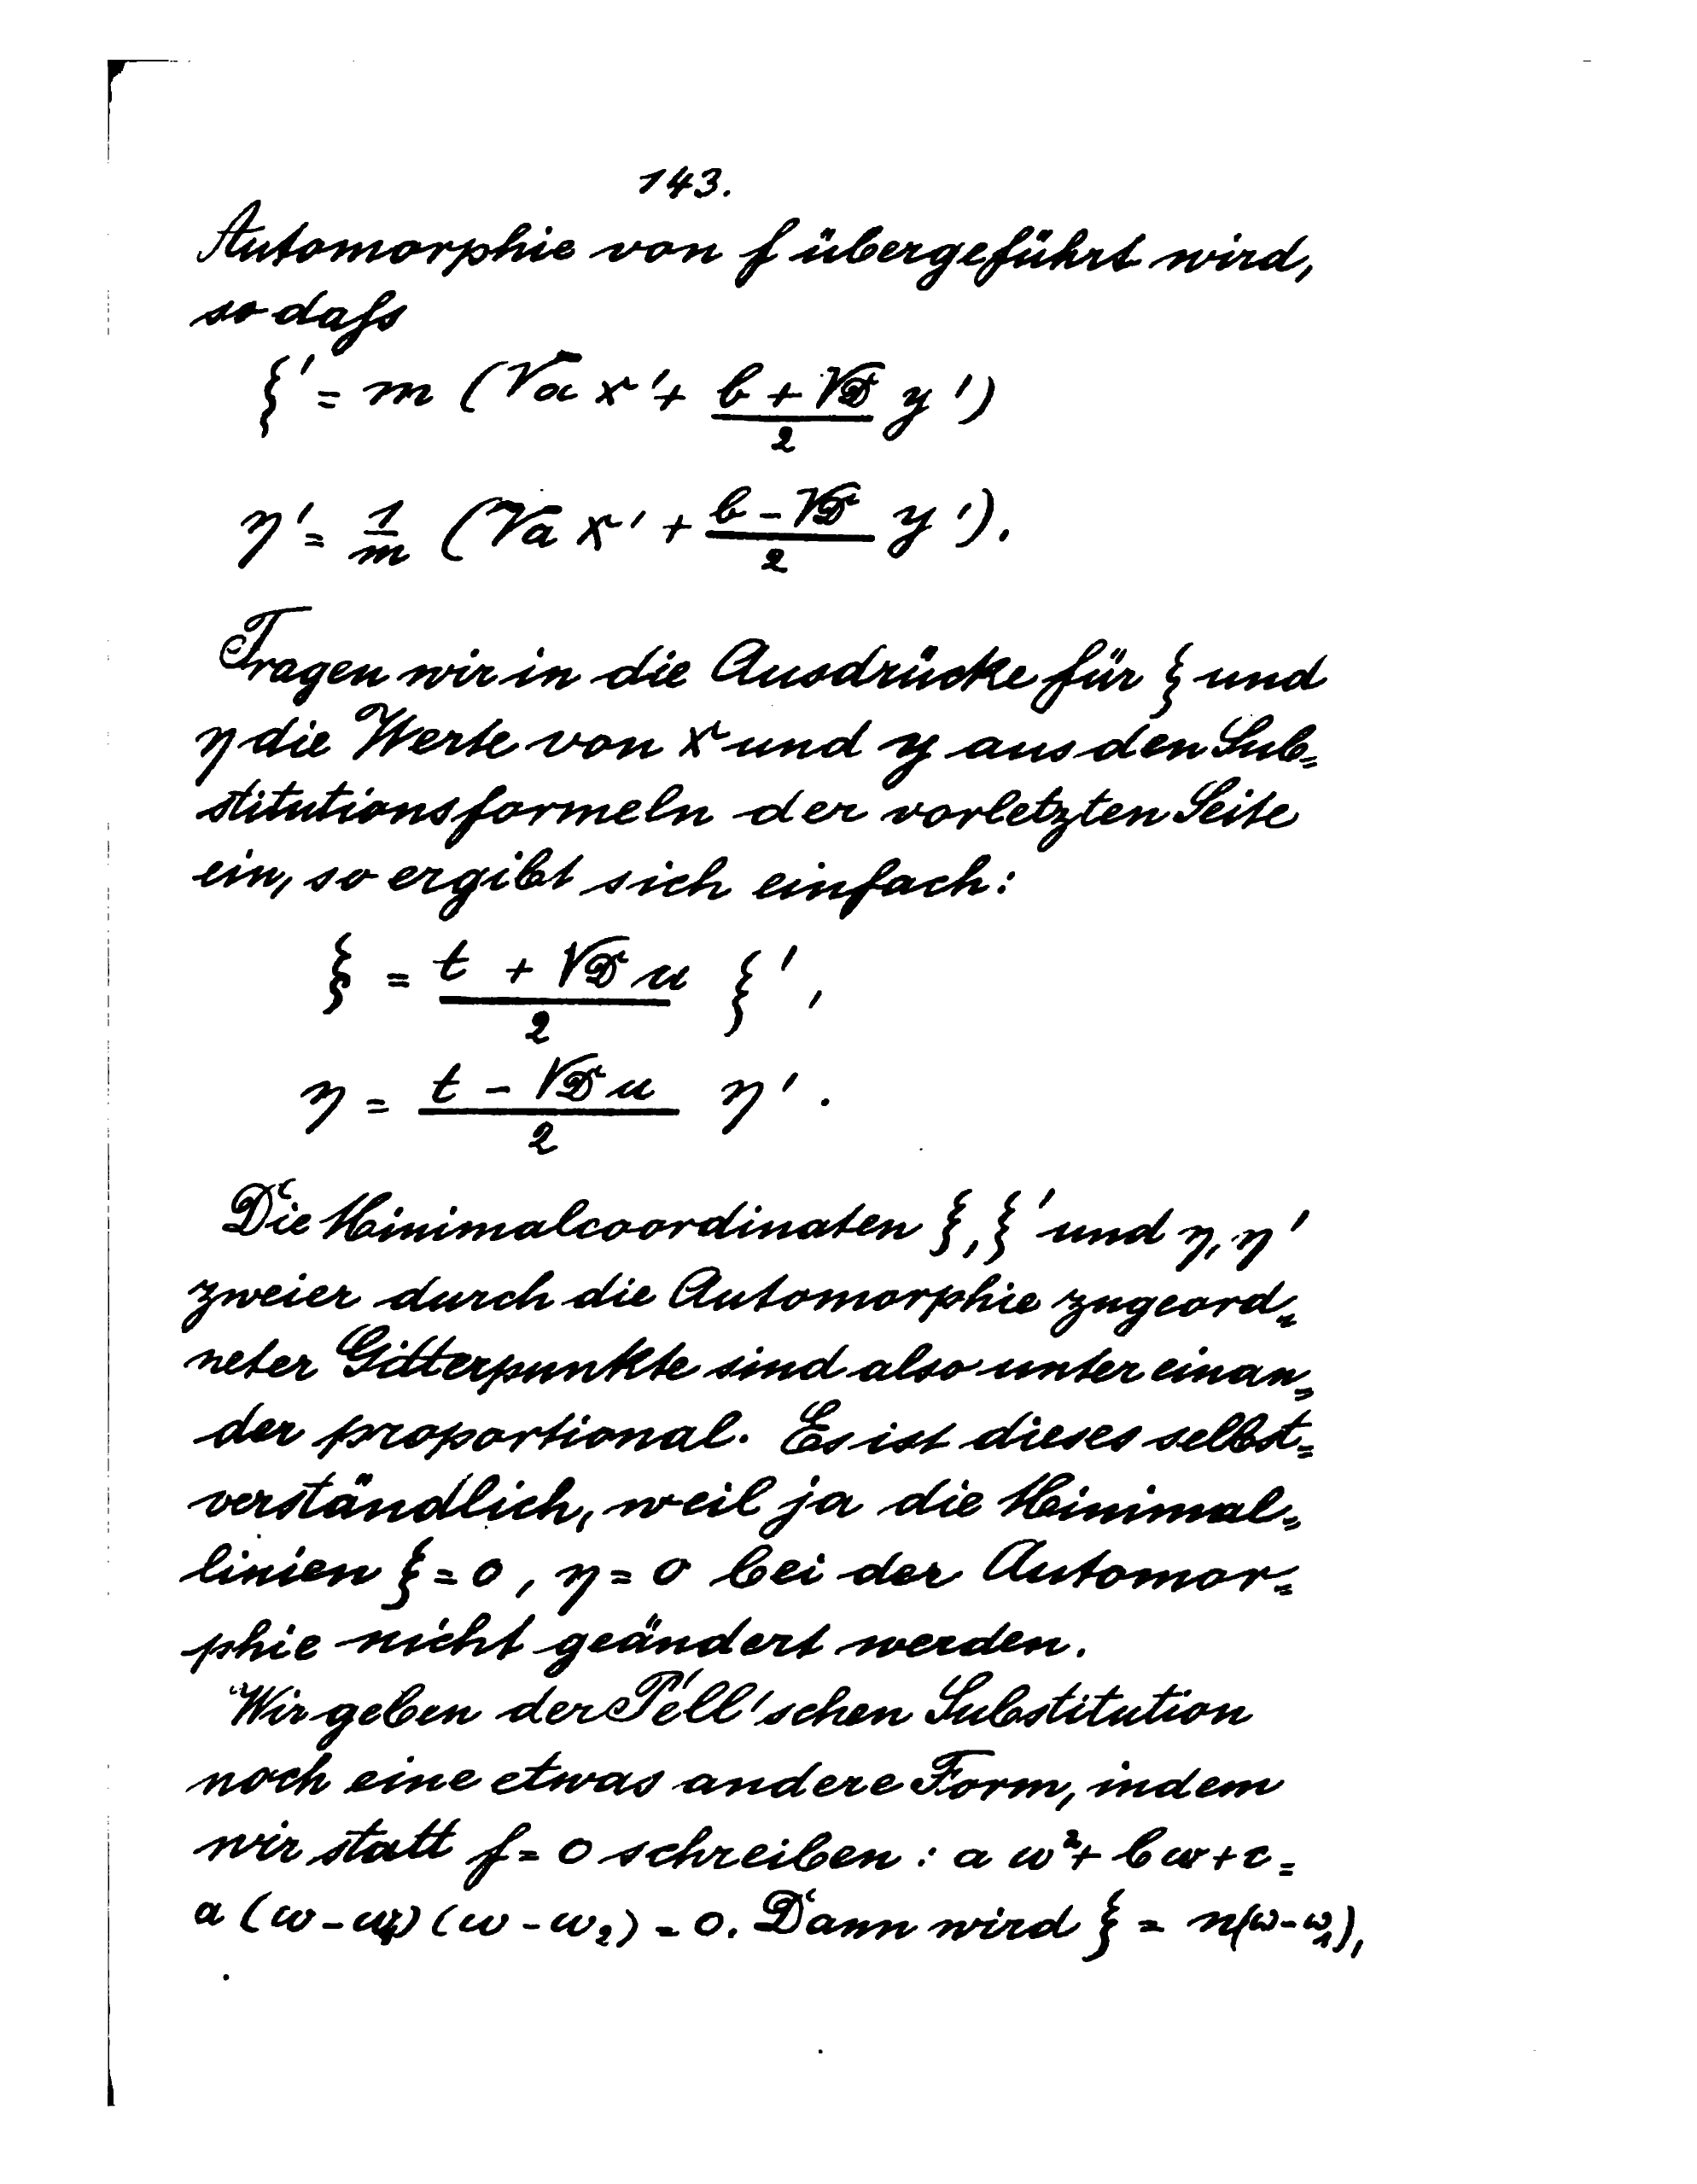 143.
Automorphie von f übergeführt wird,
so daſs
ξ' = m (√a x' + (b + √D)/2 y')
η' = 1/m (√a x' + (b - √D)/2 y').
Tragen wir in die Ausdrücke für ξ und
η die Werte von x und y aus den Sub=
stitutionsformeln der vorletzten Seite
ein, so ergibt sich einfach:
ξ = (t + √D u)/2 ξ',
η = (t - √D u)/2 η'.
Die Minimalcoordinaten ξ, ξ' und η, η'
zweier durch die Automorphie zugeord=
neter Gitterpunkte sind also unter einan=
der proportional. Es ist dieses selbst=
verständlich, weil ja die Minimal=
linien ξ = 0, η = 0 bei der Automor=
phie nicht geändert werden.
Wir geben der Pell'schen Substitution
noch eine etwas andere Form, indem
wir statt f = 0 schreiben: a ω² + b ω + c =
a (ω - ω₁) (ω - ω₂) = 0. Dann wird ξ = n(ω - ω₁),